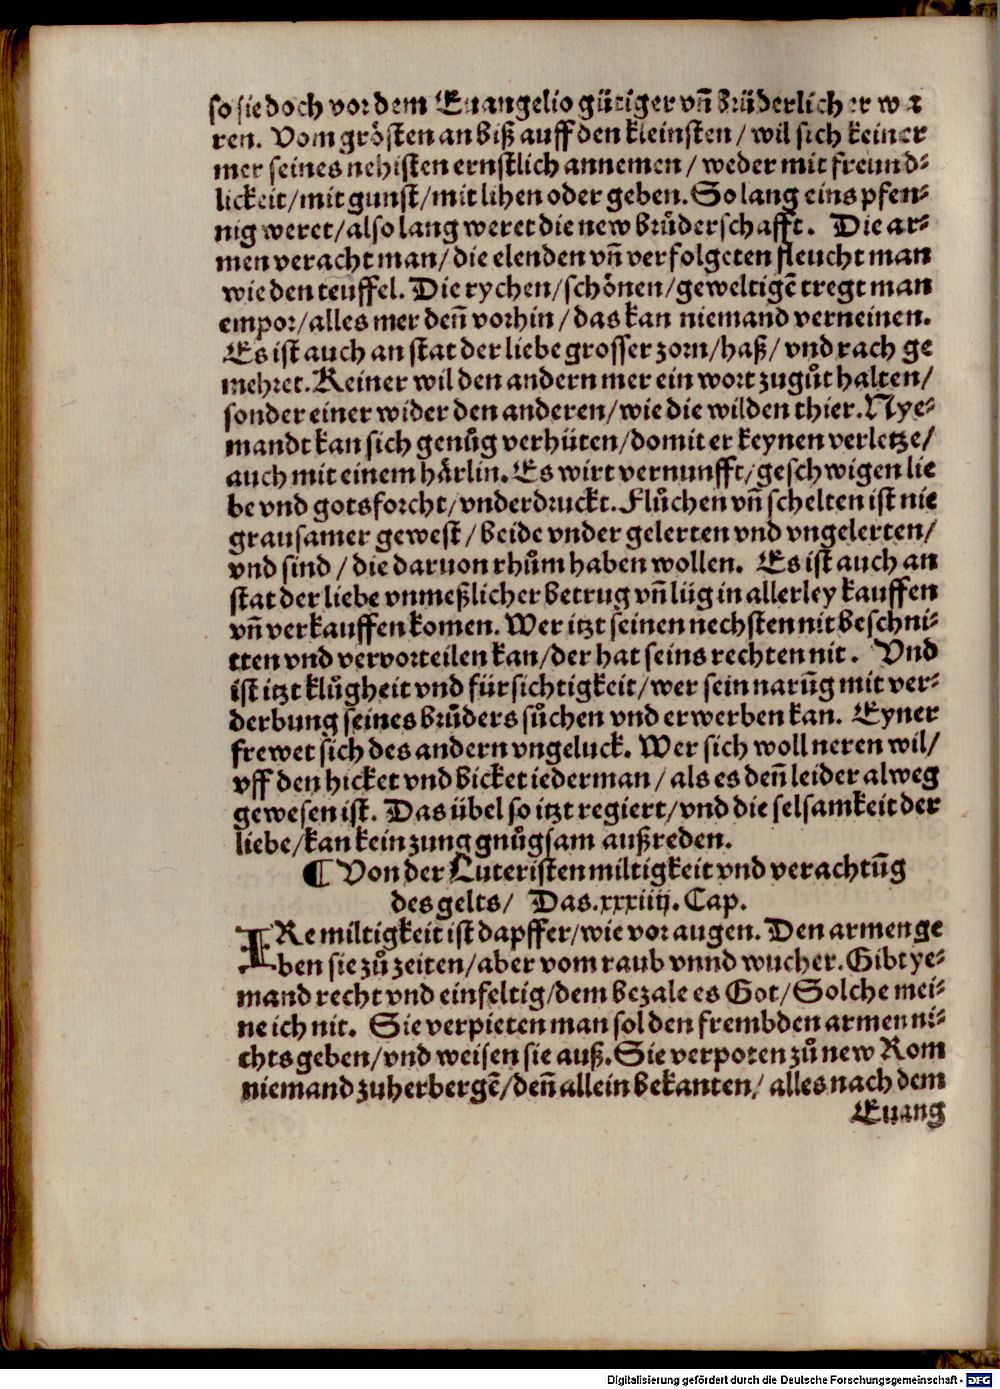 so sie doch vor dem Euangelio gütiger vñ brüderlicher wa
ren. Vom grösten an biß auff den kleinsten / wil sich keiner
mer seines nehisten ernstlich annemen / weder mit freund⸗
lickeit / mit gunst / mit lihen oder geben. So lang eins pfen⸗
nig weret / also lang weret die new brůderschafft. Die ar⸗
men veracht man / die elenden vñ verfolgeten fleucht man
wie den teuffel. Die rychen / schönen / geweltigẽ tregt man
empor / alles mer deñ vorhin / das kan niemand verneinen.
Es ist auch an stat der liebe grosser zorn / haß / vnd rach ge
mehret. Keiner wil den andern mer ein wort zugůt halten /
sonder einer wider den anderen / wie die wilden thier. Nye⸗
mandt kan sich genůg verhüten / domit er keynen verletze /
auch mit einem härlin. Es wirt vernunfft / geschwigen lie
be vnd gotsforcht / vnderdruckt. Flůchen vñ schelten ist nie
grausamer gewest / beide vnder gelerten vnd vngelerten /
vnd sind / die daruon rhům haben wollen. Es ist auch an
stat der liebe vnmeßlicher betrug vñ lüg in allerley kauffen
vñ verkauffen komen. Wer itzt seinen nechsten nit beschni⸗
tten vnd vervorteilen kan / der hat seins rechten nit. Vnd
ist itzt klůgheit vnd fürsichtigkeit / wer sein narũg mit ver⸗
derbung seines brůders sůchen vnd erwerben kan. Eyner
frewet sich des andern vngeluck. Wer sich woll neren wil /
vff den hicket vnd bicket iederman / als es deñ leider alweg
gewesen ist. Das übel so itzt regiert / vnd die selsamkeit der
liebe / kan kein zung gnůgsam außreden.
¶ Von der Luteristen miltigkeit vnd verachtũg
des gelts / Das .xxxiiij. Cap.
IRe miltigkeit ist dapffer / wie vor augen. Den armen ge
ben sie zů zeiten / aber vom raub vnnd wucher. Gibt ye⸗
mand recht vnd einfeltig / dem bezale es Got / Solche mei⸗
ne ich nit. Sie verpieten man sol den frembden armen ni⸗
chts geben / vnd weisen sie auß. Sie verpoten zů new Rom
niemand zuherbergẽ / deñ allein bekanten / alles nach dem
Euang
Digitalisierung gefördert durch die Deutsche Forschungsgemeinschaft - DFG